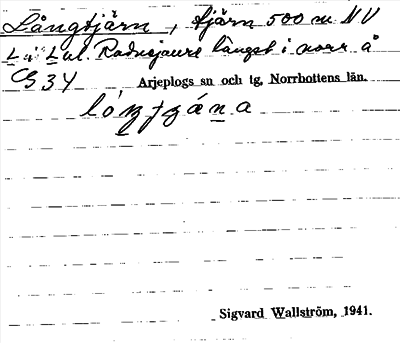 Långtjärn, tjärn 500 m NV
L. Lul. Radnejaure längst i norr å
C5 34 Arjeplogs sn och tg, Norrbottens län.
Sigvard Wallström, 1941.